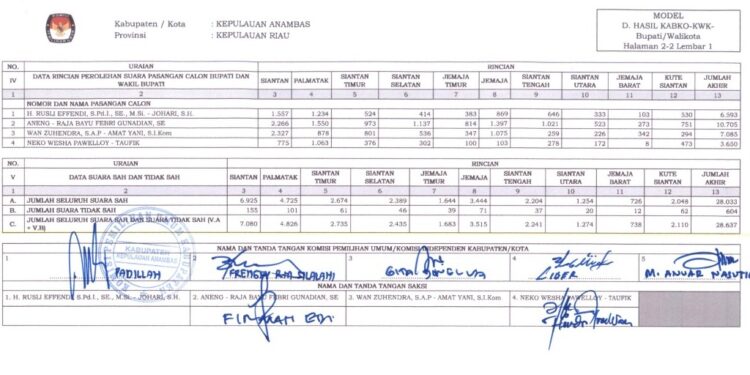 KPU
Kabupaten / Kota : KEPULAUAN ANAMBAS
Provinsi : KEPULAUAN RIAU
MODEL
D. HASIL KABKO-KWK-
Bupati/Walikota
Halaman 2-2 Lembar 1
NO. URAIAN RINCIAN
IV DATA RINCIAN PEROLEHAN SUARA PASANGAN CALON BUPATI DAN WAKIL BUPATI SIANTAN PALMATAK SIANTAN TIMUR SIANTAN SELATAN JEMAJA TIMUR JEMAJA SIANTAN TENGAH SIANTAN UTARA JEMAJA BARAT KUTE SIANTAN JUMLAH AKHIR
1 2 3 4 5 6 7 8 9 10 11 12 13
NOMOR DAN NAMA PASANGAN CALON
1 H. RUSLI EFFENDI, S.Pd.I., SE., M.Si. - JOHARI, S.H. 1.557 1.234 524 414 383 869 646 333 103 530 6.593
2 ANENG - RAJA BAYU FEBRI GUNADIAN, SE 2.266 1.550 973 1.137 814 1.397 1.021 523 273 751 10.705
3 WAN ZUHENDRA, S.A.P - AMAT YANI, S.I.Kom 2.327 878 801 536 347 1.075 259 226 342 294 7.085
4 NEKO WESHA PAWELLOY - TAUFIK 775 1.063 376 302 100 103 278 172 8 473 3.650
NO. URAIAN RINCIAN
V DATA SUARA SAH DAN TIDAK SAH SIANTAN PALMATAK SIANTAN TIMUR SIANTAN SELATAN JEMAJA TIMUR JEMAJA SIANTAN TENGAH SIANTAN UTARA JEMAJA BARAT KUTE SIANTAN JUMLAH AKHIR
1 2 3 4 5 6 7 8 9 10 11 12 13
A. JUMLAH SELURUH SUARA SAH 6.925 4.725 2.674 2.389 1.644 3.444 2.204 1.254 726 2.048 28.033
B. JUMLAH SUARA TIDAK SAH 155 101 61 46 39 71 37 20 12 62 604
C. JUMLAH SELURUH SUARA SAH DAN SUARA TIDAK SAH (V.A + V.B) 7.080 4.826 2.735 2.435 1.683 3.515 2.241 1.274 738 2.110 28.637
NAMA DAN TANDA TANGAN KOMISI PEMILIHAN UMUM/KOMISI INDEPENDEN KABUPATEN/KOTA
1 2 3 4 5
KABUPATEN
KEPULAUAN ANAMBAS
PADILLAH LIBER M. ANWAR
NAMA DAN TANDA TANGAN SAKSI
1. H. RUSLI EFFENDI S.Pd.I., SE., M.Si. - JOHARI, S.H. 2. ANENG - RAJA BAYU FEBRI GUNADIAN, SE 3. WAN ZUHENDRA, S.A.P - AMAT YANI, S.I.Kom 4. NEKO WESHA PAWELLOY - TAUFIK